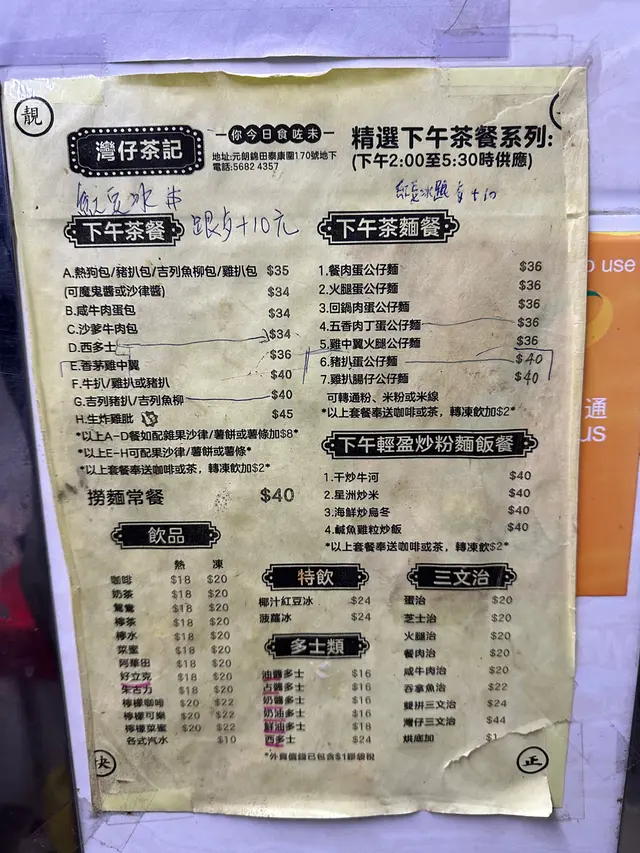 靚
灣仔茶記
你今日食咗未
地址:元朗錦田泰康圍170號地下
電話:5682 4357
精選下午茶餐系列:
(下午2:00至5:30時供應)
紅豆冰
跟多+10元
下午茶餐
A.熱狗包/豬扒包/吉列魚柳包/雞扒包 $35
(可魔鬼醬或沙律醬) $34
B.咸牛肉蛋包 $34
C.沙爹牛肉包 $34
D.西多士 $36
E.香茅雞中翼 $40
F.牛扒/雞扒或豬扒 $40
G.吉列豬扒/吉列魚柳 $45
H.生炸雞髀
*以上A-D餐如配雜果沙律/薯餅或薯條加$8*
*以上E-H可配果沙律/薯餅或薯條*
*以上套餐奉送咖啡或茶，轉凍飲加$2*
撈麵常餐 $40
紅豆冰
+10
下午茶麵餐
1.餐肉蛋公仔麵 $36
2.火腿蛋公仔麵 $36
3.回鍋肉蛋公仔麵 $36
4.五香肉丁蛋公仔麵 $36
5.雞中翼火腿公仔麵 $36
6.豬扒蛋公仔麵 $40
7.雞扒腸仔公仔麵 $40
可轉通粉、米粉或米線
*以上套餐奉送咖啡或茶，轉凍飲加$2*
下午輕盈炒粉麵飯餐
1.干炒牛河 $40
2.星洲炒米 $40
3.海鮮炒烏冬 $40
4.鹹魚雞粒炒飯 $40
*以上套餐奉送咖啡或茶，轉凍飲$2*
飲品
熱 凍
咖啡 $18 $20
奶茶 $18 $20
鴛鴦 $18 $20
檸茶 $18 $20
檸水 $18 $20
菜蜜 $18 $20
阿華田 $18 $20
好立克 $18 $20
朱古力 $18 $20
檸檬咖啡 $20 $22
檸檬可樂 $20 $22
檸檬菜蜜 $20 $22
各式汽水 $10
特飲
椰汁紅豆冰 $24
菠蘿冰 $24
多士類
油醬多士 $16
占醬多士 $16
奶醬多士 $16
奶油多士 $16
鮮油多士 $18
西多士 $24
三文治
蛋治 $20
芝士治 $20
火腿治 $20
餐肉治 $20
咸牛肉治 $20
吞拿魚治 $22
雙拼三文治 $24
灣仔三文治 $44
烘底加 $1
*外賣價錢已包含$1膠袋稅
快
正
o use
通
us